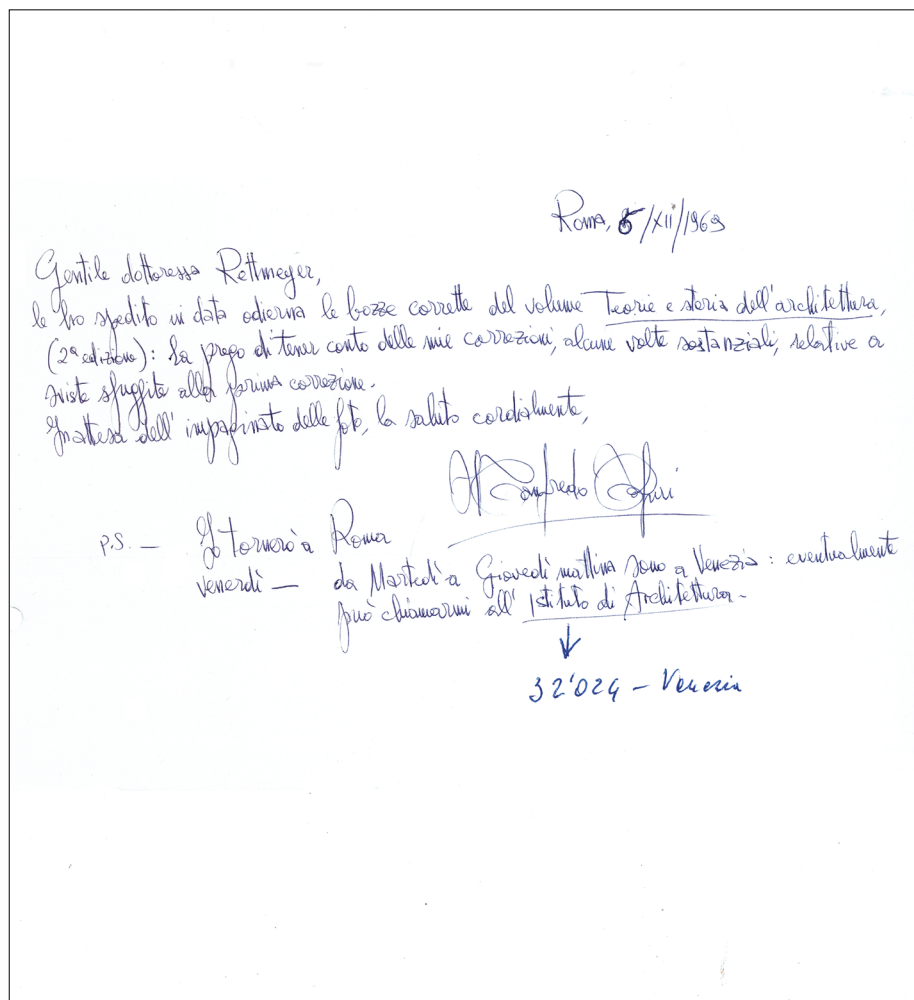 Roma, 6/XII/1969
Gentile dottoressa Rettmeyer,
le ho spedito in data odierna le bozze corrette del volume Teorie e storia dell'architettura,
(2ª edizione): La prego di tener conto delle mie correzioni, alcune volte sostanziali, relative a
sviste sfuggite alla prima correzione.
In attesa dell'impaginato delle foto, la saluto cordialmente,
Manfredo Tafuri
P.S. — Io tornerò a Roma
venerdì — da Martedì a Giovedì mattina sono a Venezia: eventualmente
può chiamarmi all'Istituto di Architettura.
↓
32'024 – Venezia